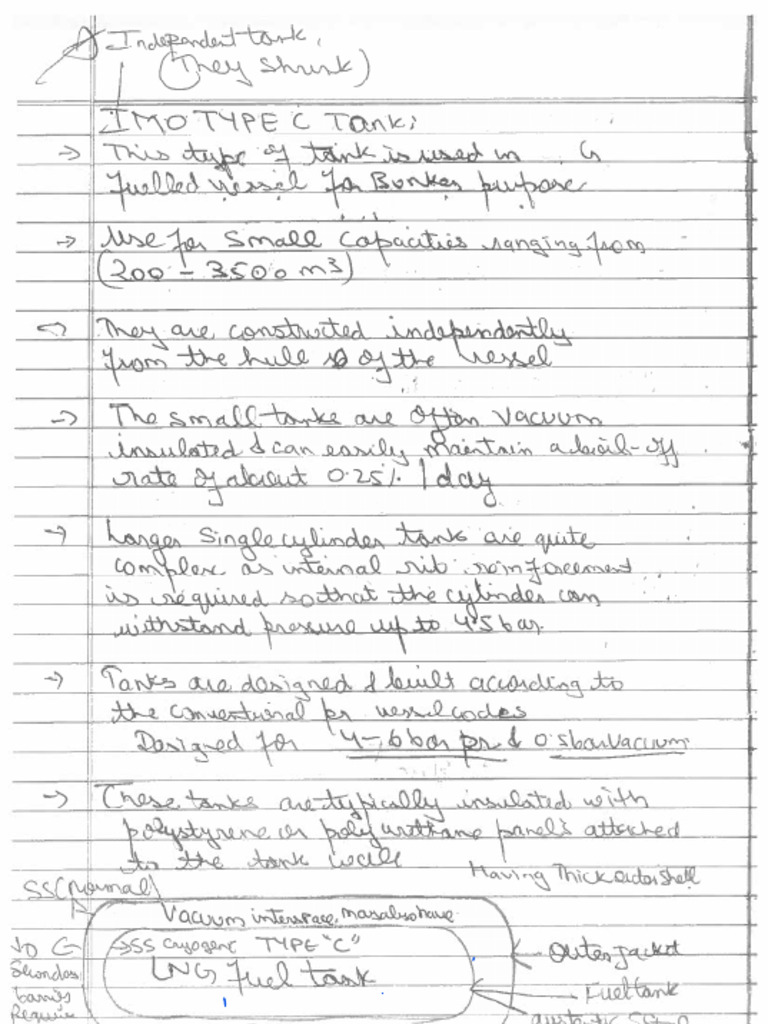 A) Independent tank,
(They Shrink)
IMO TYPE C Tank:
→ This type of tank is used in G
fuelled vessel for Bunker purpose
→ Use for small capacities ranging from
(200 - 3500 m³)
→ They are constructed independently
from the hull of the vessel
→ The small tanks are often vacuum
insulated & can easily maintain a boil-off
rate of about 0.25% / day
→ Larger single cylinder tank are quite
complex as internal rib reinforcement
is required so that the cylinder can
withstand pressure up to 4.5 bar.
→ Tanks are designed & built according to
the conventional pr vessel codes
Designed for 4-6 bar pr & 0.5 bar Vacuum
→ These tanks are typically insulated with
polystyrene or polyurethane panels attached
to the tank wall
Having Thick outer shell
SS (Normal)
Vacuum interspace, may also have
→ SS cryogenic TYPE "C"
LNG Fuel tank
Outer Jacket
Fuel tank
Secondary
barrier
Require